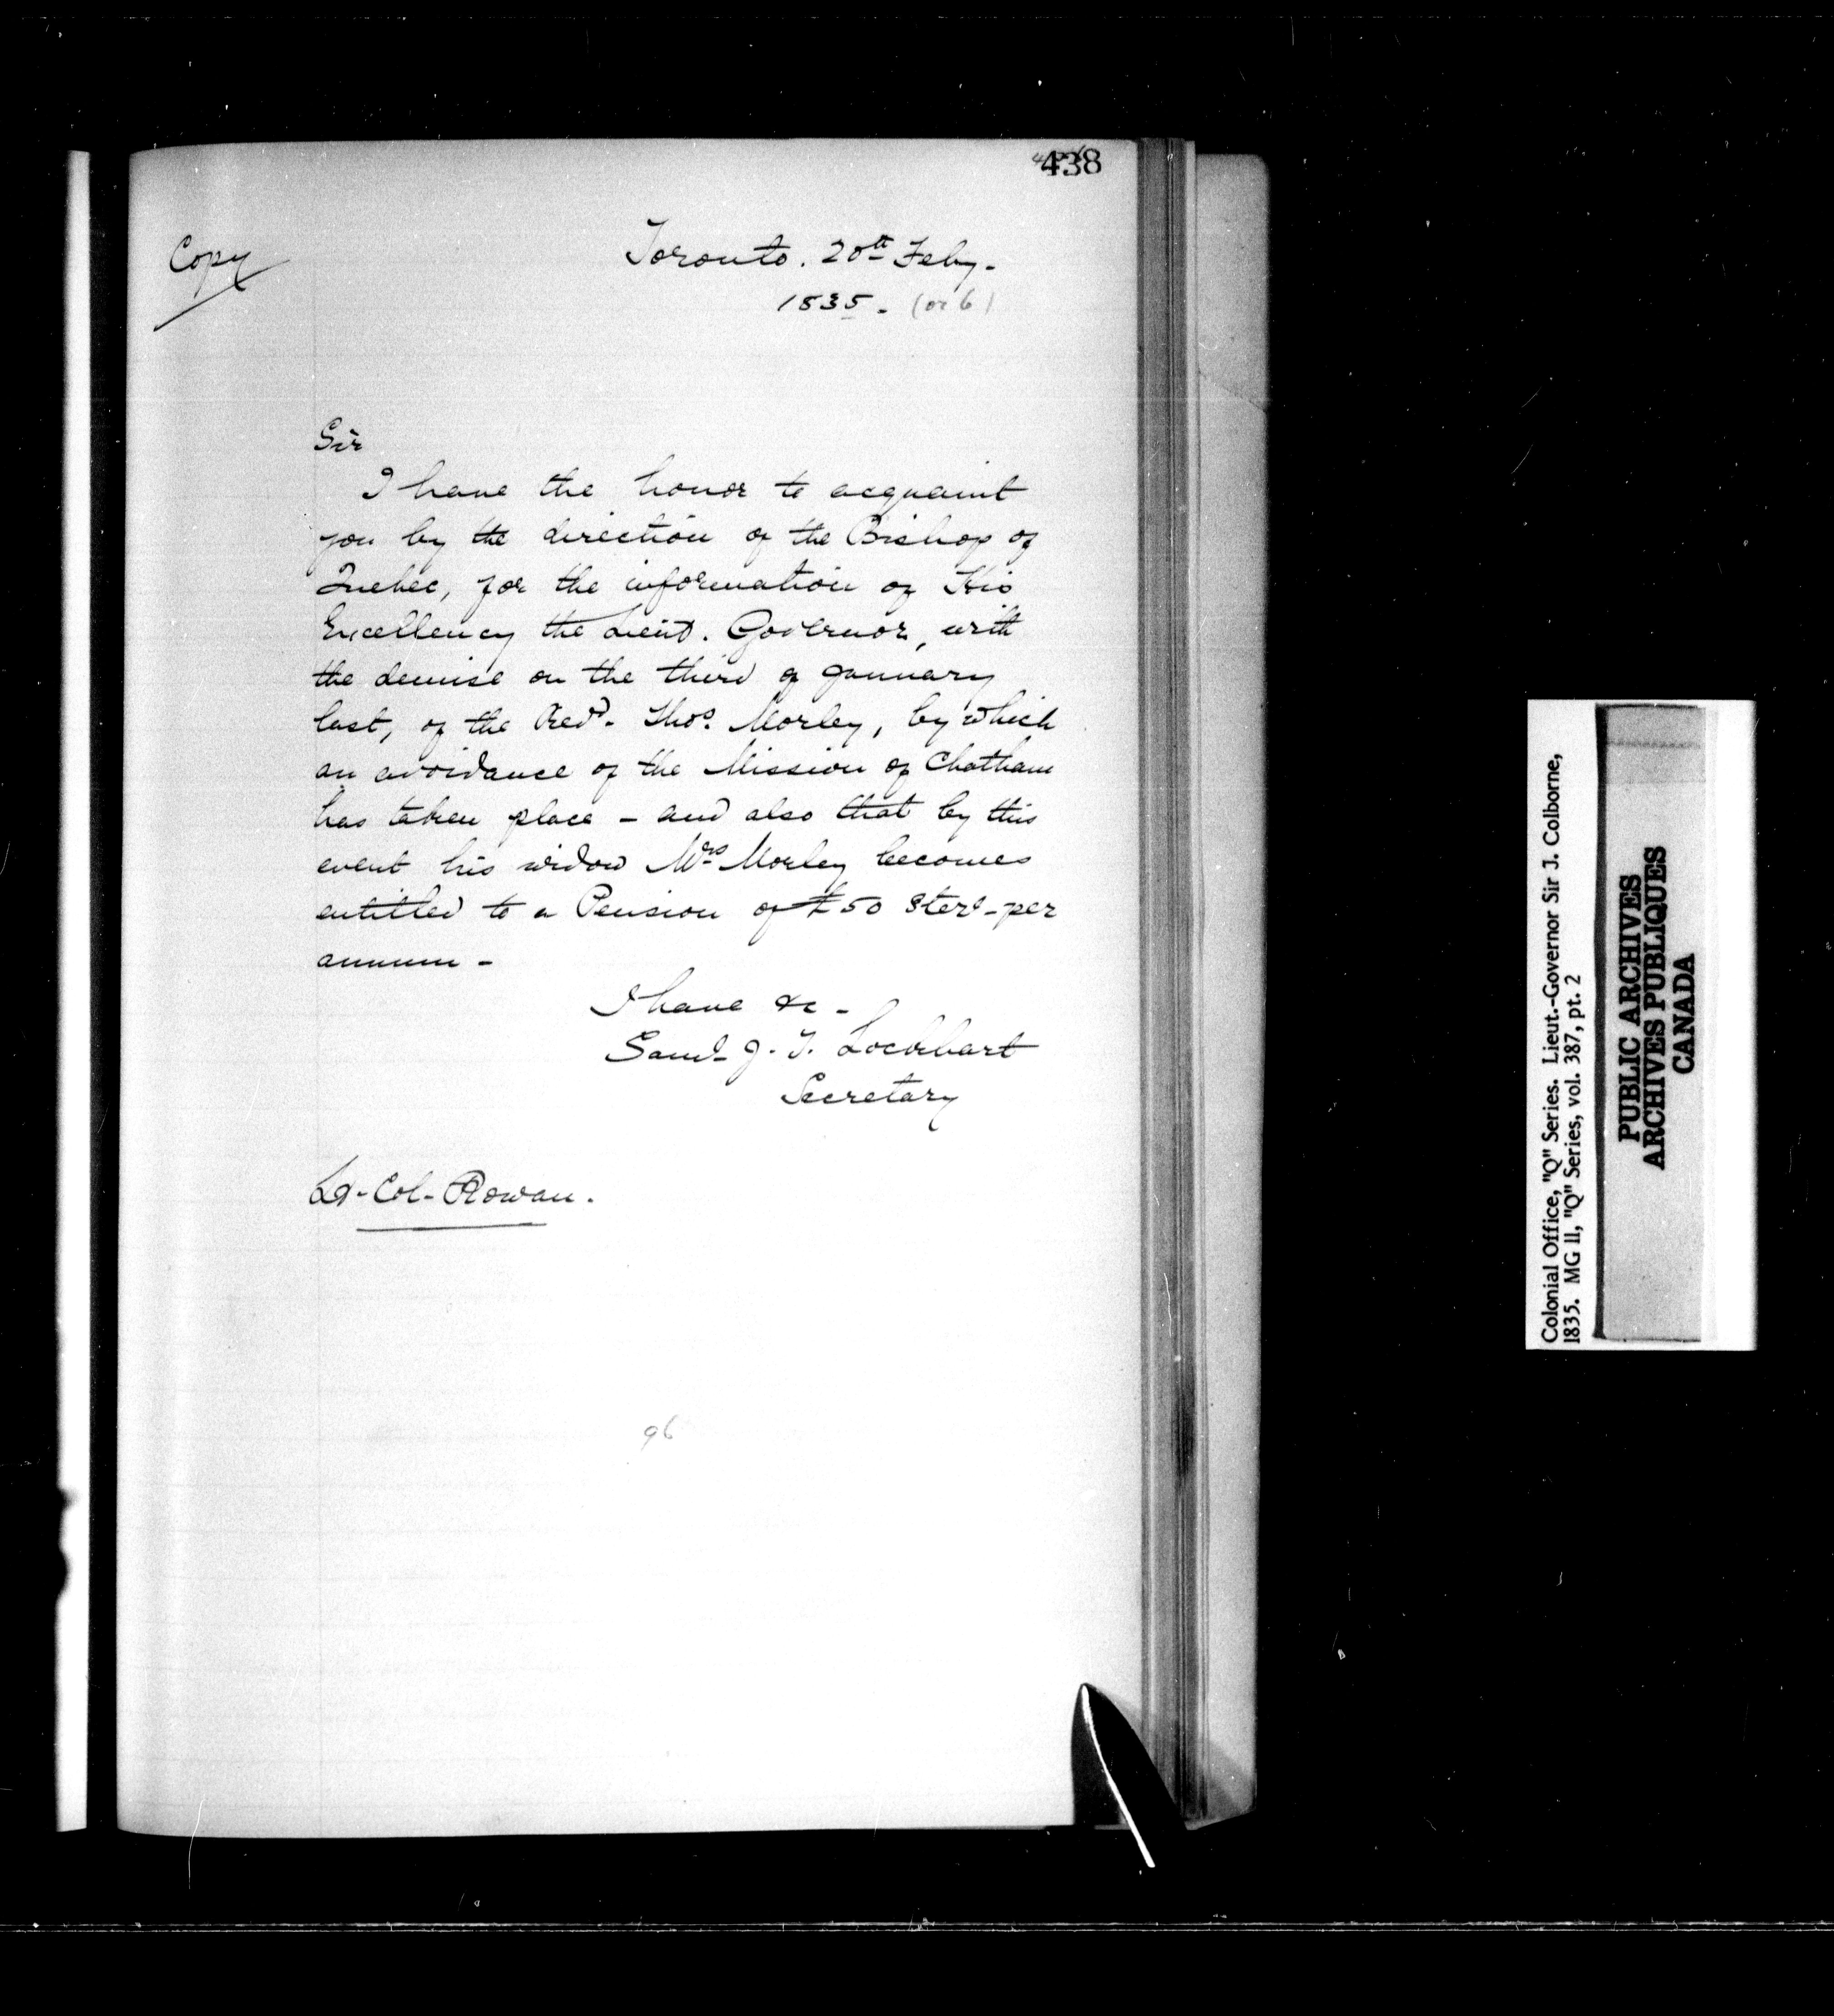 438
Copy
Toronto. 20th Feby-
1835. (or 6)
Sir
I have the honor to acquaint
you by the direction of the Bishop of
Quebec, for the information of His
Excellency the Lieut. Governor, with
the demise on the third of January
last, of the Revd. Thos. Morley, by which
an avoidance of the Mission of Chatham
has taken place - and also that by this
event his widow Mrs Morley becomes
entitled to a Pension of £50 Sterl- per
annum -
I have &c -
Saml- J. T. Lockhart
Secretary
Lt- Col- Rowan.
96
Colonial Office, "Q" Series. Lieut.-Governor Sir J. Colborne,
1835. MG 11, "Q" Series, vol. 387, pt. 2
PUBLIC ARCHIVES
ARCHIVES PUBLIQUES
CANADA